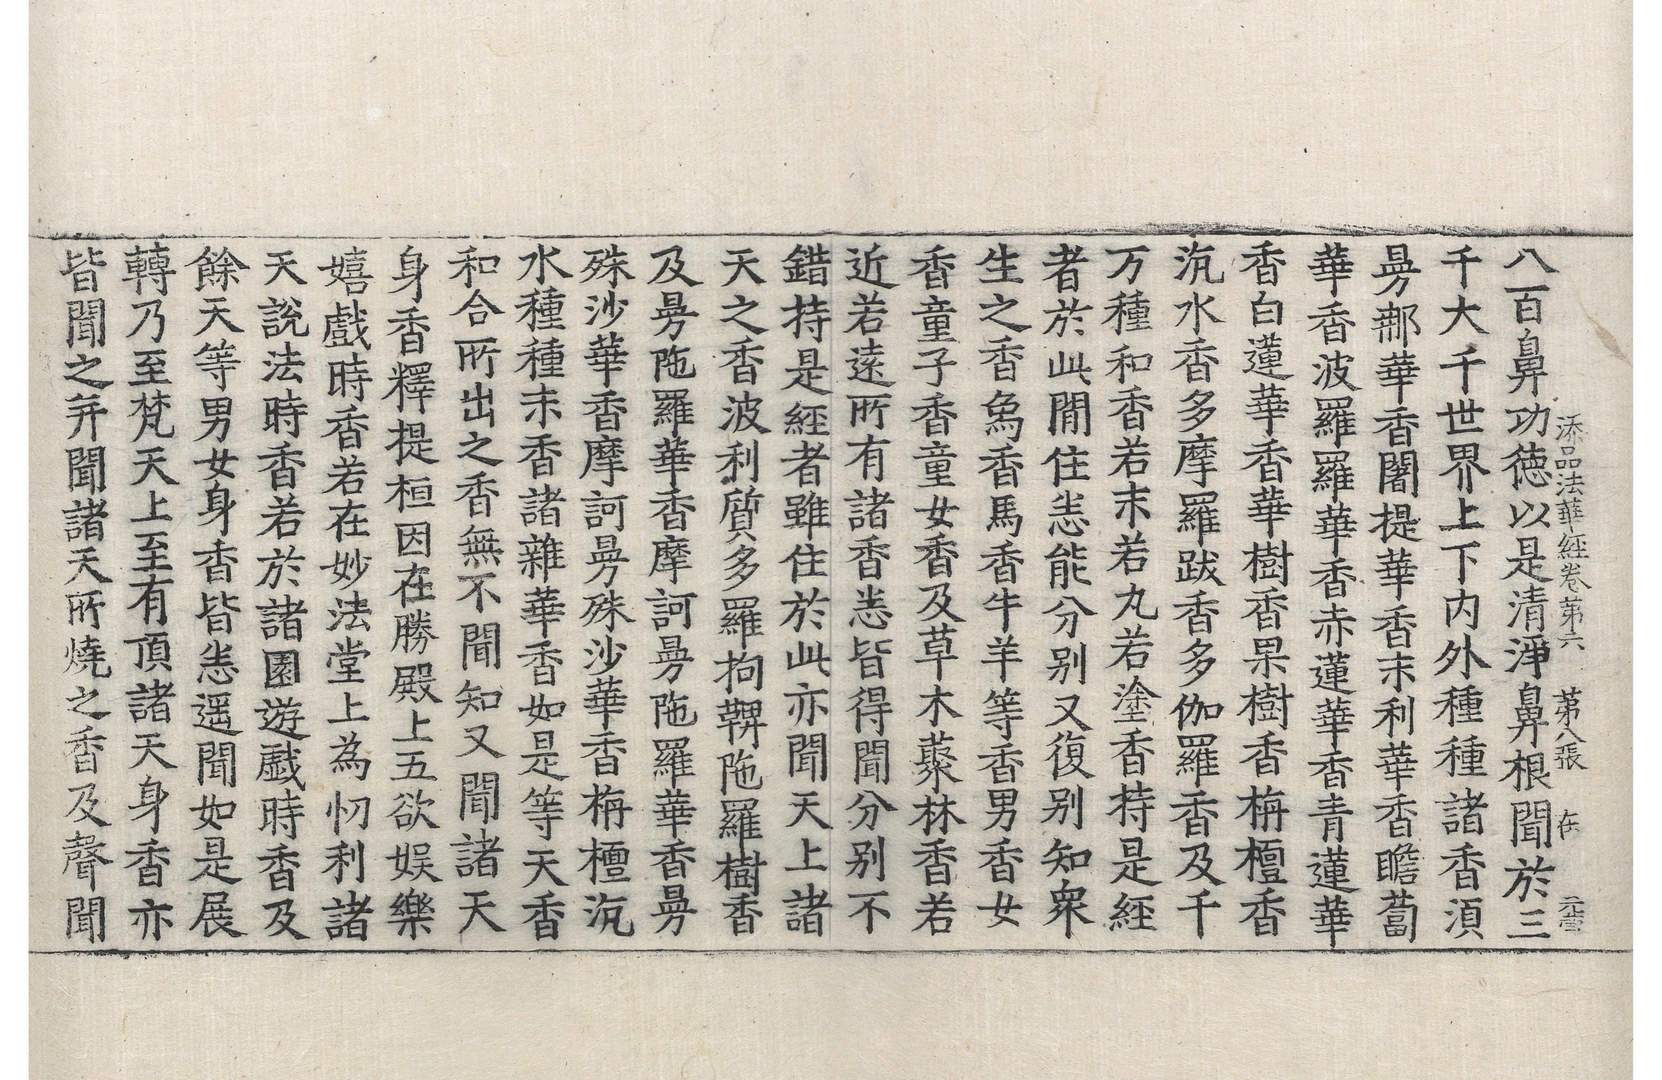 添品法華經卷第六 第八張 在 元䨥
八百鼻功德以是清淨鼻根聞於三
千大千世界上下内外種種諸香湏
曼那華香闍提華香末利華香瞻蔔
華香波羅羅華香赤蓮華香青蓮華
香白蓮華香華樹香果樹香栴檀香
沉水香多摩羅跋香多伽羅香及千
万種和香若末若丸若塗香持是經
者於此間住悉能分别又復别知衆
生之香象香馬香牛羊等香男香女
香童子香童女香及草木藂林香若
近若遠所有諸香悉皆得聞分别不
錯持是經者雖住於此亦聞天上諸
天之香波利質多羅拘鞞陁羅樹香
及曼陁羅華香摩訶曼陁羅華香曼
殊沙華香摩訶曼殊沙華香栴檀沉
水種種末香諸雜華香如是等天香
和合所出之香無不聞知又聞諸天
身香釋提桓因在勝殿上五欲娛樂
嬉戲時香若在妙法堂上為忉利諸
天說法時香若於諸園遊戲時香及
餘天等男女身香皆悉遥聞如是展
轉乃至梵天上至有頂諸天身香亦
皆聞之并聞諸天所燒之香及聲聞